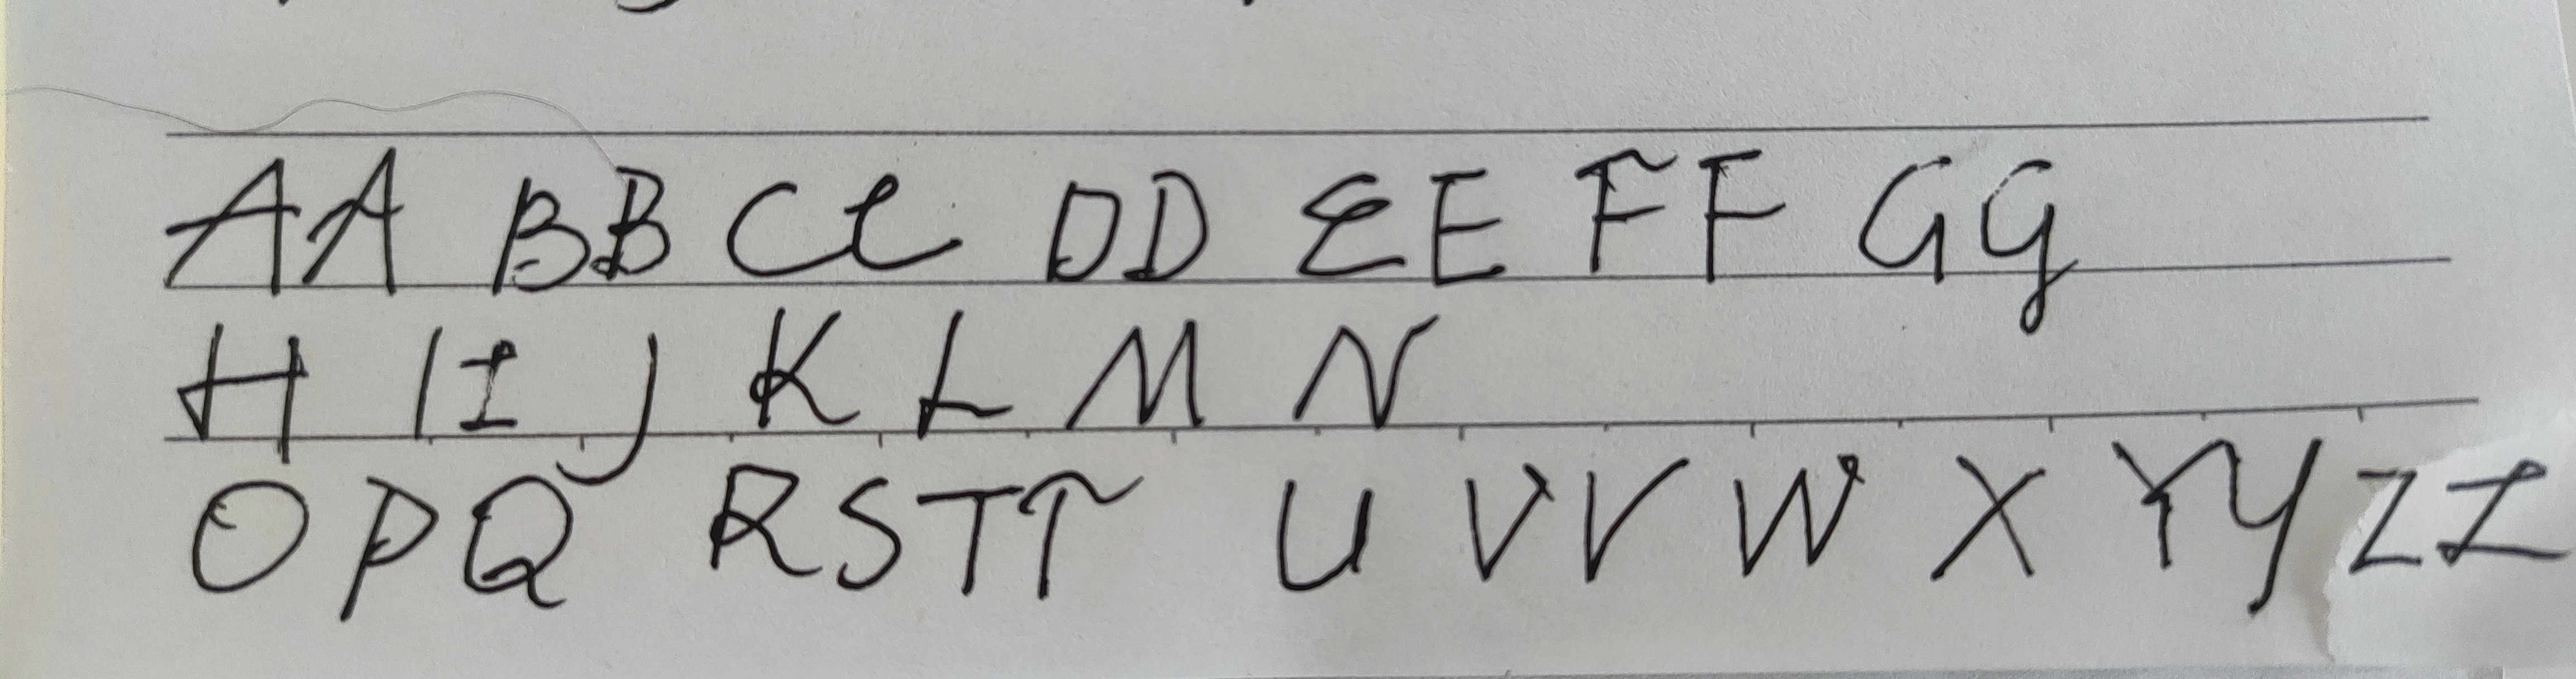 AA BB CC DD EE FF GG
H I I J K L M N
O P Q R S T T U V V W X Y Y Z Z